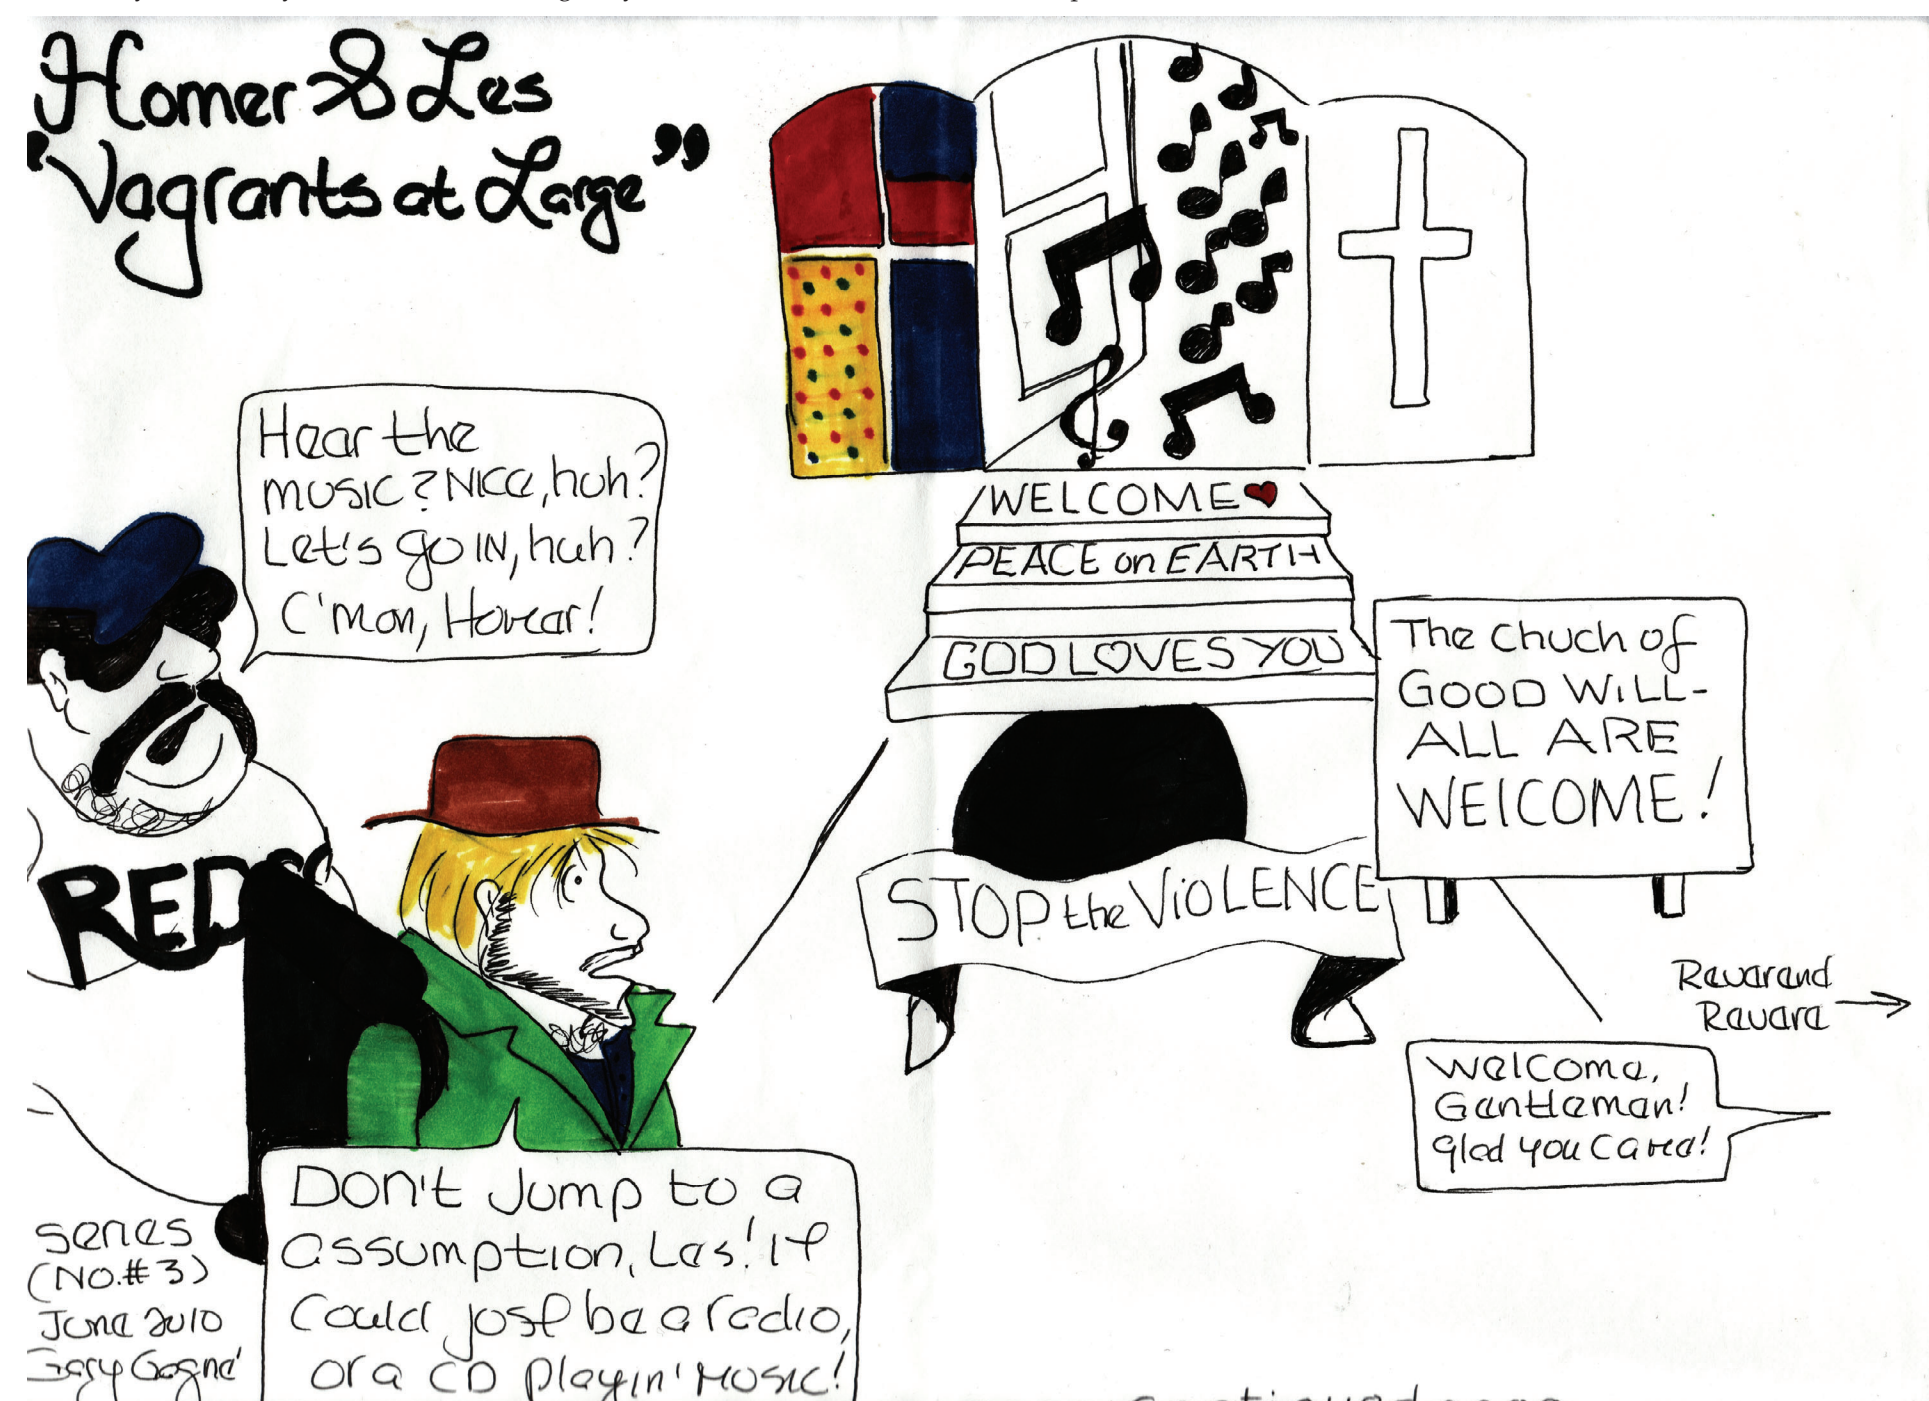 Homer & Les
"Vagrants at Large"
Hear the
music? Nice, huh?
Let's go IN, huh?
C'mon, Homer!
WELCOME
PEACE on EARTH
GOD LOVES YOU
The Chuch of
GOOD WILL-
ALL ARE
WELCOME!
STOP the VIOLENCE
Reverend
Revere
Welcome,
Gentlemen!
glad you came!
RED
Don't Jump to a
assumption, Les! It
could just be a radio,
or a CD playin' music!
series
(NO.#3)
June 2010
Gary Gagne'